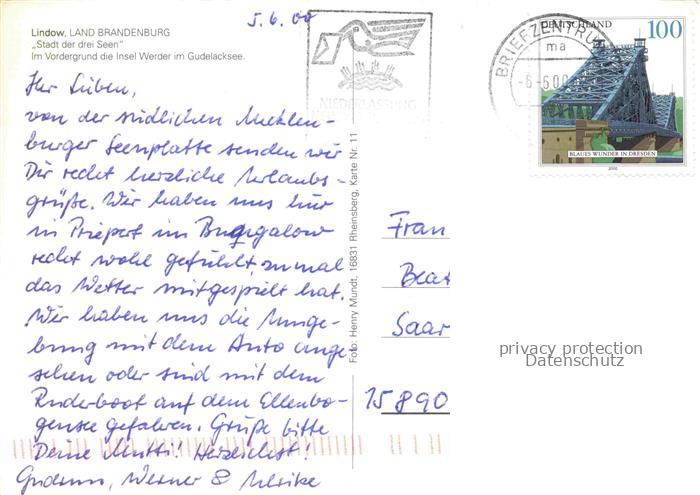 Lindow, LAND BRANDENBURG
„Stadt der drei Seen"
Im Vordergrund die Insel Werder im Gudelacksee.
5.6.00
Ihr Lieben,
von der südlichen Mecklen-
burger Seenplatte senden wir
Dir recht herzliche Urlaubs-
grüße. Wir haben uns hier
in Priepert im Bungalow
recht wohl gefühlt, zumal
das Wetter mitgespielt hat.
Wir haben uns die Umge-
bung mit dem Auto ange-
sehen oder sind mit dem
Ruderboot auf dem Ellenbo-
gensee gefahren. Grüße bitte
Deine Mutti! Herzlichst!
Gudrun, Werner & Ulrike
Foto: Henry Mundt, 16831 Rheinsberg, Karte Nr. 11
NIEDERLASSUNG
BRIEFZENTRUM
ma
-6-500
DEUTSCHLAND
100
BLAUES WUNDER IN DRESDEN
2000
Frau
Beat
Saar
15890
privacy protection
Datenschutz